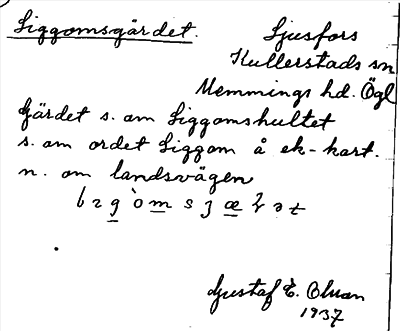 Liggomsgärdet.
Ljusfors
Kullerstads sn
Memmings hd. Ögl
Gärdet s. om Liggomshultet
s. om ordet Liggom å ek-kart.
n. om landsvägen
Gustaf E. Olsson
1937